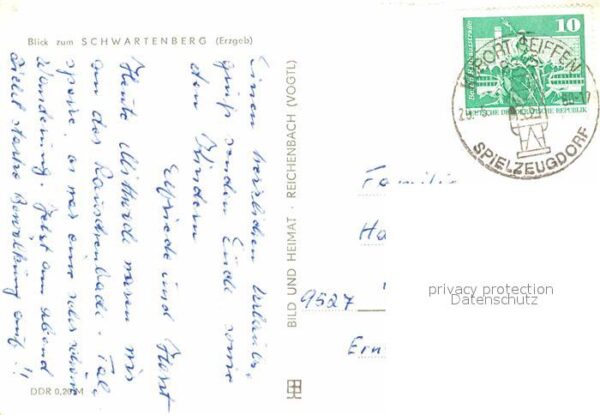 Blick zum SCHWARTENBERG (Erzgeb)
Einen herzlichen Urlaubs-
gruß senden Euch sowie
den Kindern
Elfriede und Horst
Heute Mittwoch waren wir
an der Rauschenbach- Tal-
sperre, es war eine sehr schöne
Wanderung. Jetzt am Abend
zieht starke Bewölkung auf!!
DDR 0,20 M
BILD UND HEIMAT · REICHENBACH (VOGTL)
10
DEUTSCHE DEMOKRATISCHE REPUBLIK
KURORT SEIFFEN
SPIELZEUGDORF
Familie
Ha
9527
Ern
privacy protection
Datenschutz